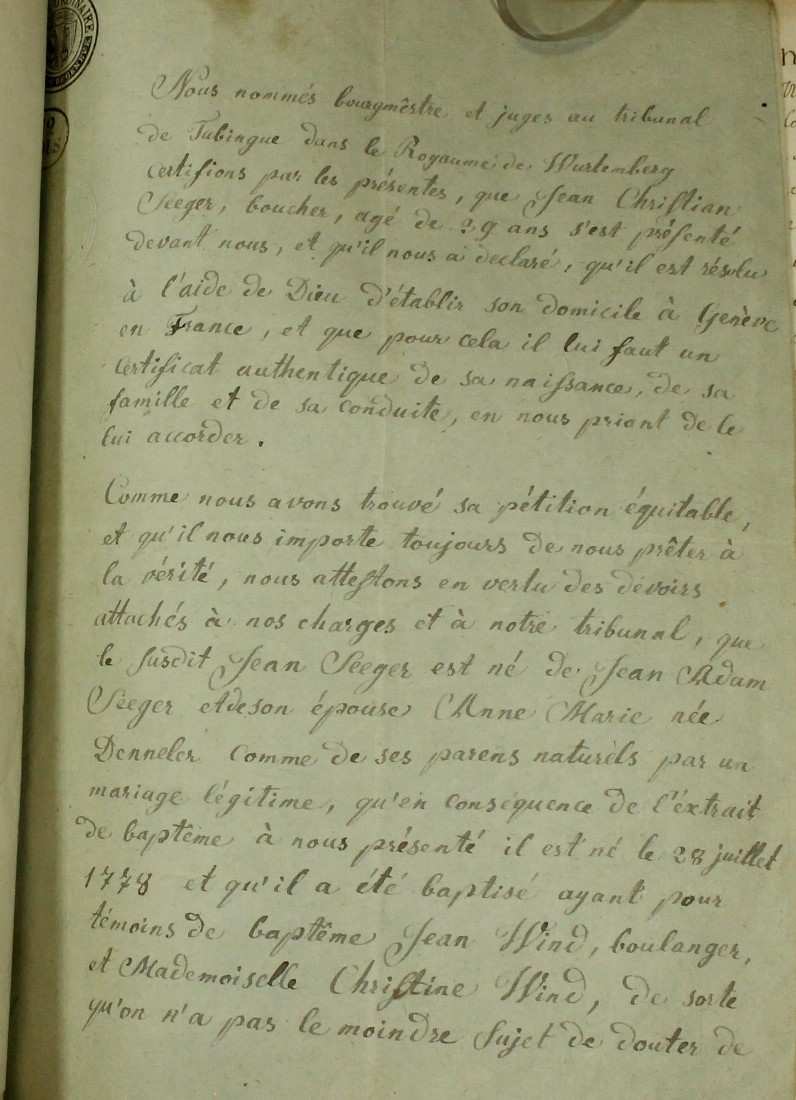 Nous nommés bourgmêstre et juges au tribunal
de Tubingue dans le Royaume de Wurtemberg
certifions par les présentes, que Jean Christian
Seeger, boucher, agé de 29 ans s'est présenté
devant nous, et qu'il nous a declaré, qu'il est résolu
à l'aide de Dieu d'établir son domicile à Genève
en France, et que pour cela il lui faut un
certificat authentique de sa naissance, de sa
famille et de sa conduite, en nous priant de le
lui accorder.
Comme nous avons trouvé sa pétition équitable,
et qu'il nous importe toujours de nous prêter à
la vérité, nous attestons en vertu des devoirs
attachés à nos charges et à notre tribunal, que
le susdit Jean Seeger est né de Jean Adam
Seeger et de son épouse Anne Marie née
Denneler comme de ses parens naturels par un
mariage légitime, qu'en conséquence de l'éxtrait
de baptême à nous présenté il est né le 28 juillet
1778 et qu'il a été baptisé ayant pour
témoins de baptême Jean Wind, boulanger,
et Mademoiselle Christine Wind, de sorte
qu'on n'a pas le moindre sujet de douter de